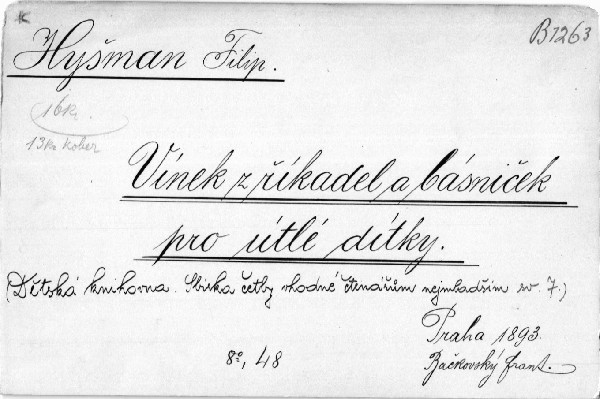 B1263
Hyšman Filip.
16k.
13k. kober
Vínek z říkadel a básniček
pro útlé dítky.
(Dětská knihovna. Sbírka četby vhodné čtenářům nejmladším sv. 7.)
Praha 1893.
8º, 48
Bačkovský Frant.